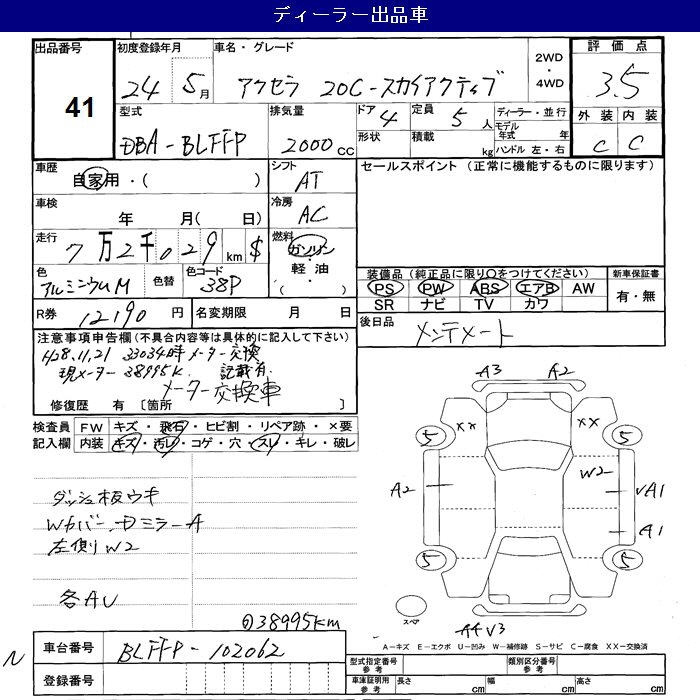 ディーラー出品車
出品番号 41
初度登録年月 24 5月
車名・グレード アクセラ 20C-スカイアクティブ
2WD・4WD
評価点 3.5
外装 C 内装 C
型式 DBA-BLFFP
排気量 2000cc
ドア 4 形状
定員 5人 積載 kg
ディーラー・並行
モデル年式 年
ハンドル 左・右
車歴 自家用・( )
シフト AT
セールスポイント (正常に機能するものに限ります)
車検 年 月( 日)
冷房 AC
走行 7万2千029km $
燃料 ガソリン・軽油・( )
色 アルミニウムM 色替 色コード 38P
装備品(純正品に限り○をつけてください)
PS PW ABS エアB AW
SR ナビ TV カワ
新車保証書 有・無
R券 12190円 名変期限 月 日
後日品 メンテノート
注意事項申告欄(不具合内容等は具体的に記入して下さい)
H28.11.21 33034時 メーター交換
現メーター 38995K 記載有
メーター交換車
修復歴 有 [箇所 ]
検査員記入欄
FW キズ・飛石・ヒビ割・リペア跡・×要
内装 キズ・汚レ・コゲ・穴・スレ・キレ・破レ
ダッシュ板ウキ
Wカバー、Dミラー A
左側リW2
各AU
38995km
A3 A2
5 XX XX 5
A2 W2 A1
A1
5 5
スペア
A4 V3
A-キズ E-エクボ U-凹み W-補修跡 S-サビ C-腐食 XX-交換済
N
車台番号 BLFFP-102062
登録番号
型式指定番号 参考 類別区分番号 参考
車庫証明用 参考 長さ cm 幅 cm 高さ cm